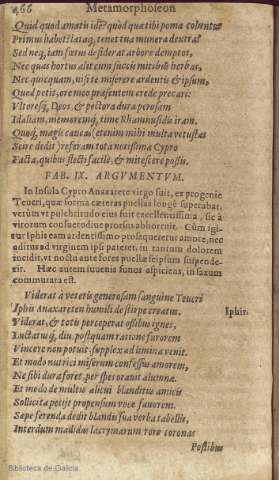 466 Metamorphoseon
Quid quod amatis idē? quod quæ tibi poma coluntur
Primus habet: lætaq; tenet tua munera dextra?
Sed neq; iam fœtus desiderat arbore demptos,
Nec quas hortus alit cum succis mitibus herbas,
Nec quicquam, nisi te miserere ardentis & ipsum,
Quod petit, ore meo præsentem crede precari:
Vltoresq; Deos, & pectora dura perosam
Idaliam, memoremq; time Rhamnusidis iram.
Quoq; magis caueas (etenim mihi multa vetustas
Scire dedit) referam tota notissima Cypro
Facta, quibus flecti facilè, & mitescere possis.
FAB. IX. ARGVMENTVM.
In Insula Cypro Anaxarete virgo fuit, ex progenie
Teucri, quæ forma cæteras puellas longè superabat,
verùm vt pulchritudo eius fuit excellentissima, sic à
virorum consuetudine prorsus abhorruit. Cùm igi-
tur Iphis eam ardentissimo prosequeretur amore, nec
aditus ad virginem ipsi pateret, in tantum dolorem
incidit, vt noctu ante fores puellæ seipsum suspende-
rit. Hæc autem iuuenis funus aspiciens, in saxum
commutata est.
Viderat à veteris generosam sanguine Teucri
Iphis Anaxareten humili de stirpe creatus. Iphis.
Viderat, & totis perceperat ossibus ignes,
Luctatusq; diu, postquam ratione furorem
Vincere non potuit, supplex ad limina venit.
Et modò nutrici miserum confessus amorem,
Ne sibi dura foret, per sperarat alumnæ.
Et modò de multis alicui blanditus amicis
Sollicita petijt propensum voce fauorem.
Sæpe ferenda dedit blandis sua verba tabellis,
Interdum madidas lacrymarum rore coronas
Postibus
Biblioteca de Galicia